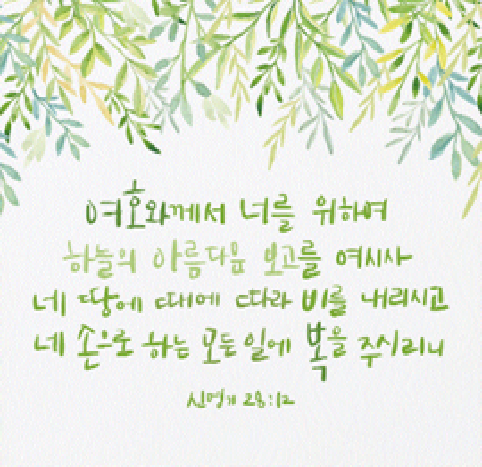 여호와께서 너를 위하여
하늘의 아름다운 보고를 여시사
네 땅에 때에 따라 비를 내리시고
네 손으로 하는 모든 일에 복을 주시리니
신명기 28:12